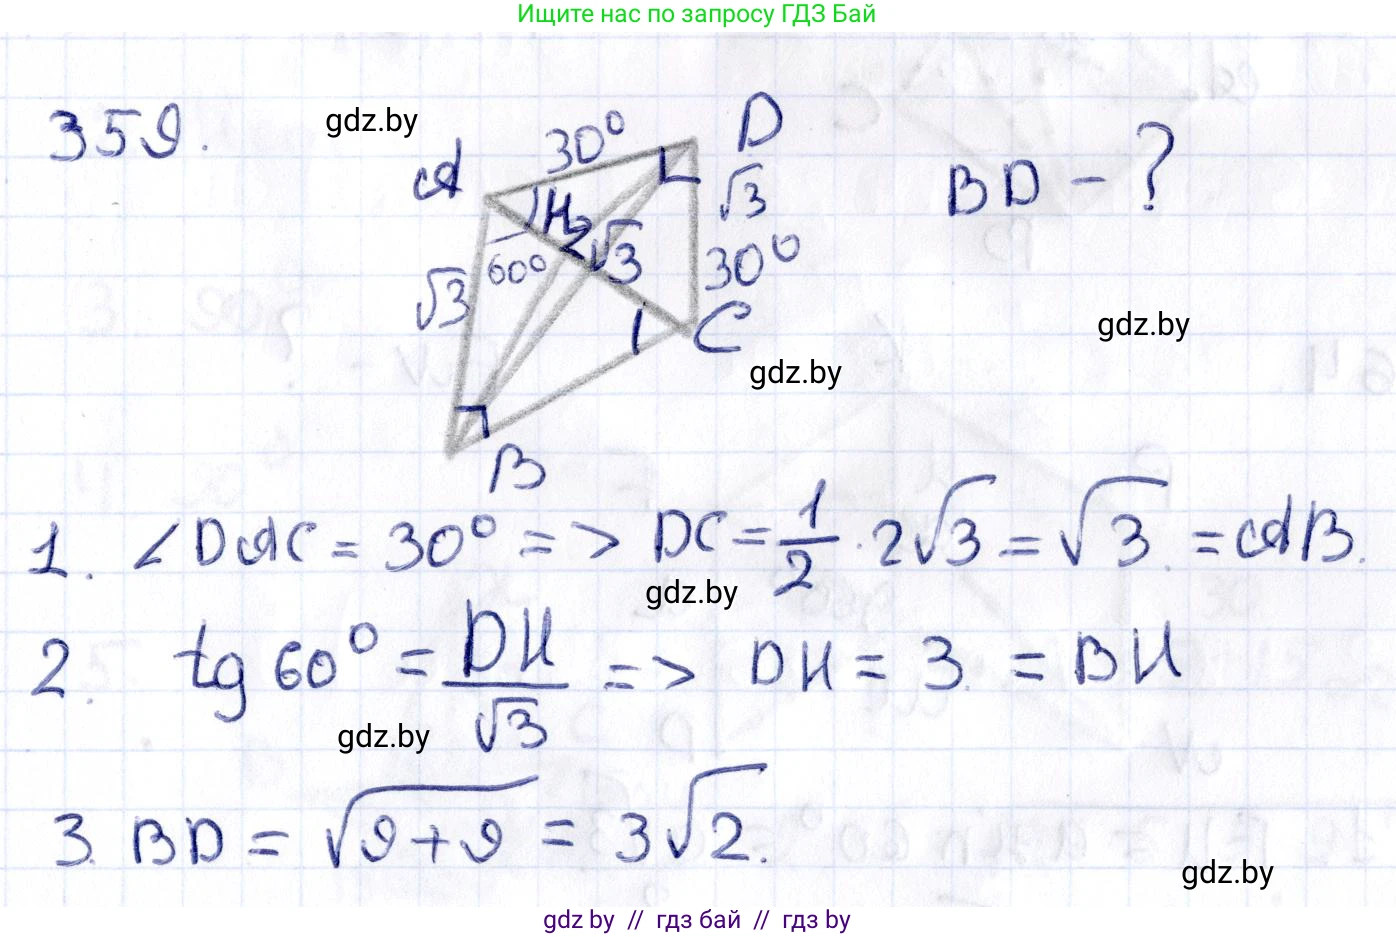 Ищите нас по запросу ГДЗ Бай
359.
gdz.by
A
30°
D
BD - ?
H
√3
2√3
60°
√3
30°
gdz.by
C
gdz.by
B
1. ∠DAC = 30° => DC = 1/2 · 2√3 = √3 = AB.
gdz.by
2. tg 60° = DH/√3 => DH = 3. = BH
gdz.by
3. BD = √9+9 = 3√2.
gdz.by
gdz by // гдз бай // гдз by